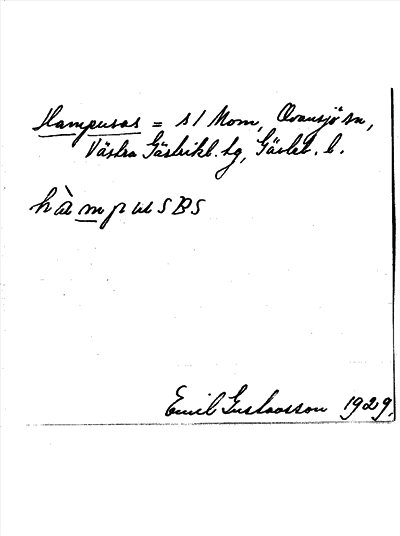 Hampusas = s/ Mom, Ovansjö sn,
Västra Gästrikl. tg, Gävleb. l.
hàmpusBs
Emil Gustavsson 1929.